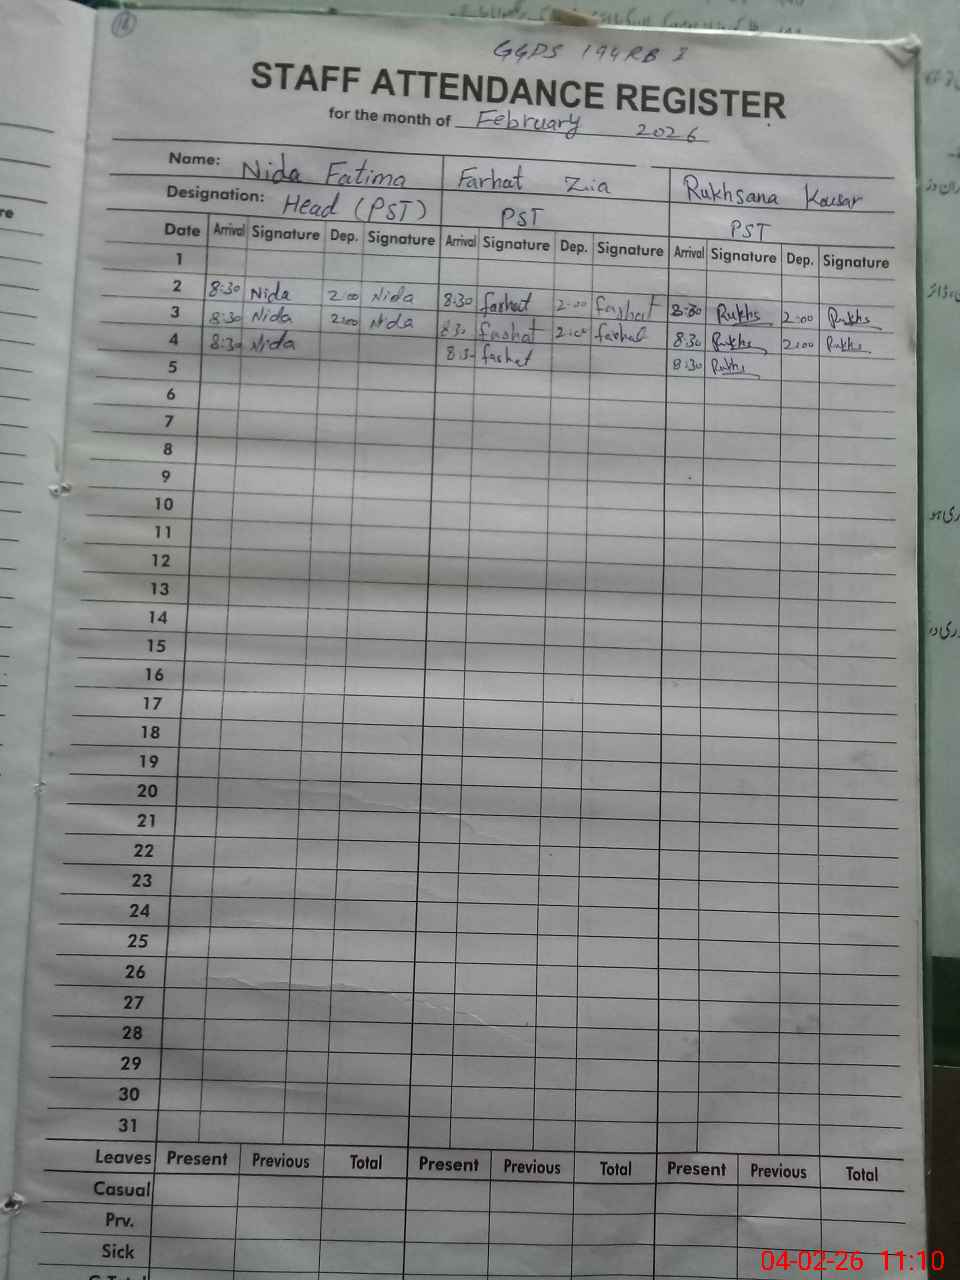 18
GGPS 194RB I
STAFF ATTENDANCE REGISTER
for the month of February 2026
Name: Nida Fatima Farhat Zia Rukhsana Kousar
Designation: Head (PST) PST PST
Date Arrival Signature Dep. Signature Arrival Signature Dep. Signature Arrival Signature Dep. Signature
1
2 8:30 Nida 2:00 Nida 8:30 farhat 2:00 farhat 8:30 Rukhs 2:00 Rukhs
3 8:30 Nida 2:00 Nida 8:30 farhat 2:00 farhat 8:30 Rukhs 2:00 Rukhs
4 8:30 Nida 8:30 farhat 8:30 Rukhs
5
6
7
8
9
10
11
12
13
14
15
16
17
18
19
20
21
22
23
24
25
26
27
28
29
30
31
Leaves Present Previous Total Present Previous Total Present Previous Total
Casual
Prv.
Sick
04-02-26 11:10